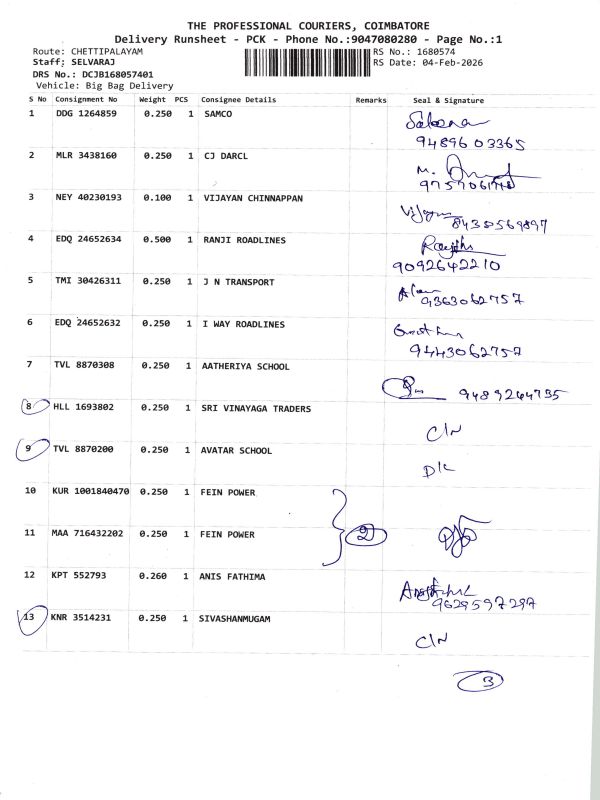 THE PROFESSIONAL COURIERS, COIMBATORE
Delivery Runsheet - PCK - Phone No.:9047080280 - Page No.:1
Route: CHETTIPALAYAM RS No.: 1680574
Staff: SELVARAJ RS Date: 04-Feb-2026
DRS No.: DCJB168057401
Vehicle: Big Bag Delivery
S No Consignment No Weight PCS Consignee Details Remarks Seal & Signature
1 DDG 1264859 0.250 1 SAMCO
9489603365
2 MLR 3438160 0.250 1 CJ DARCL
M.
3 NEY 40230193 0.100 1 VIJAYAN CHINNAPPAN
8438569897
4 EDQ 24652634 0.500 1 RANJI ROADLINES
9092642210
5 TMI 30426311 0.250 1 J N TRANSPORT
9363062757
6 EDQ 24652632 0.250 1 I WAY ROADLINES
9443062757
7 TVL 8870308 0.250 1 AATHERIYA SCHOOL
9489244735
8 HLL 1693802 0.250 1 SRI VINAYAGA TRADERS
C/N
9 TVL 8870200 0.250 1 AVATAR SCHOOL
D/L
10 KUR 1001840470 0.250 1 FEIN POWER
11 MAA 716432202 0.250 1 FEIN POWER 2
12 KPT 552793 0.260 1 ANIS FATHIMA
9629597297
13 KNR 3514231 0.250 1 SIVASHANMUGAM
C/N
3